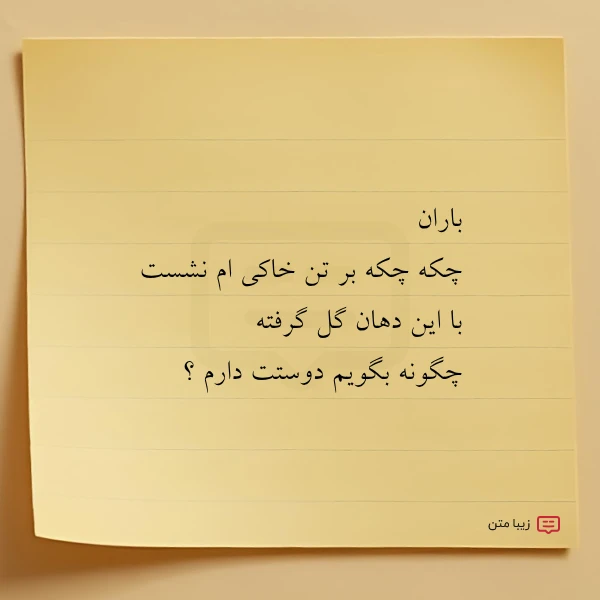 باران
چکه چکه بر تن خاکی ام نشست
با این دهان گل گرفته
چگونه بگویم دوستت دارم ؟
زیبا متن